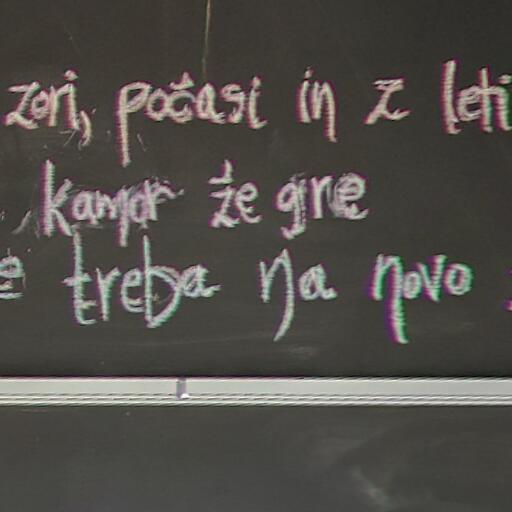 zori, počasi in z leti
kamor že gre
treba na novo